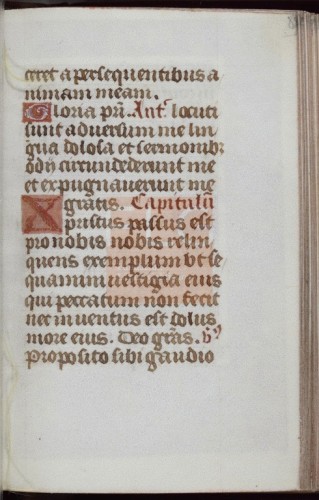 ceret a persequentibus a
nimam meam.
Gloria pr̄i. Ant̄. locuti
sunt aduersum me lin
gua dolosa et sermonibꝰ
odij circundederunt me
et expugnauerunt me
gratis. Capitulū
Xpristus passus est
pro nobis nobis relin
quens exemplum vt se
quamini uestigia eius
qui peccatum non fecit
nec inuentus est dolus
in ore eius. Deo grās. v̄s
Proposito sibi gaudio